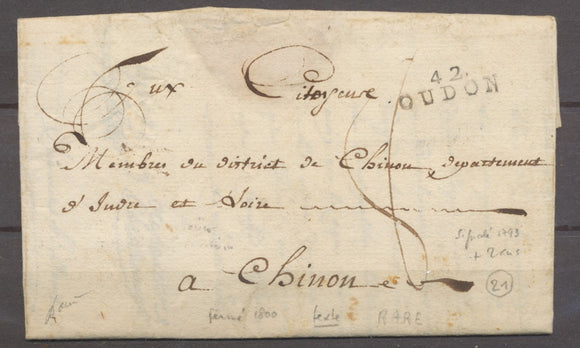 Aux Citoyens
42
OUDON
Membres du district de Chinon, departement
d'Indre et Loire
Signalé 1793
+ 2 ans
a Chinon
21
fermé 1800 texte RARE